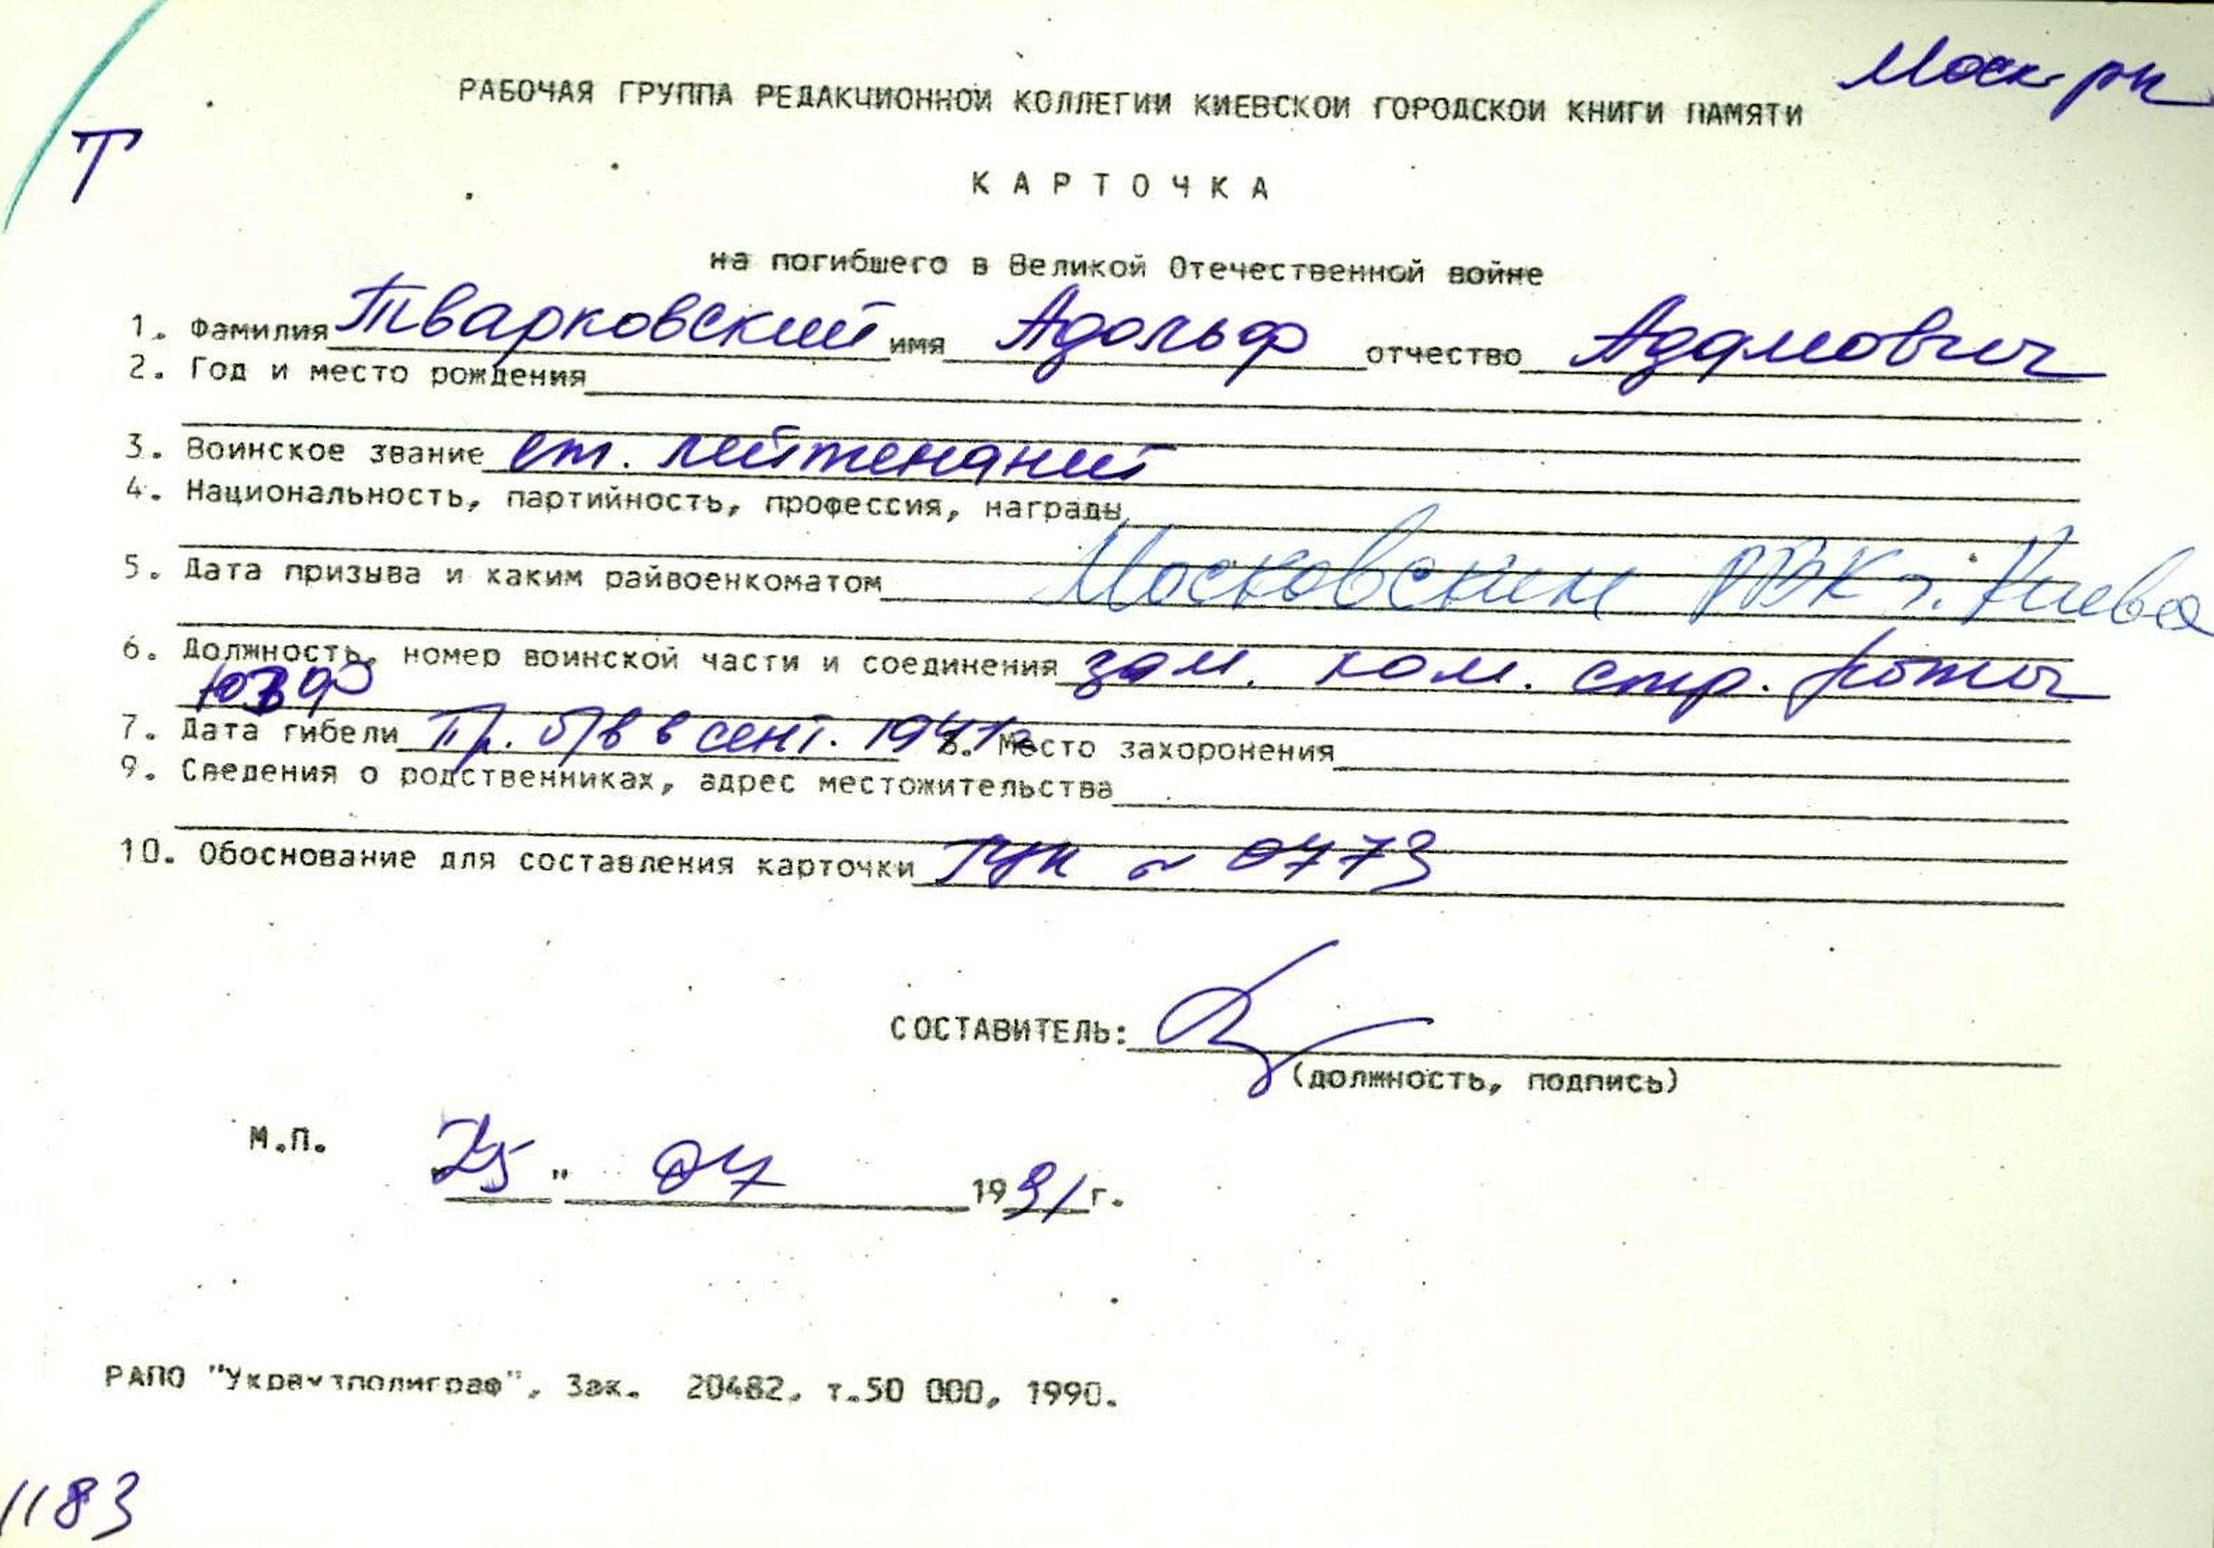 Моск рн
РАБОЧАЯ ГРУППА РЕДАКЦИОННОЙ КОЛЛЕГИИ КИЕВСКОЙ ГОРОДСКОЙ КНИГИ ПАМЯТИ
Т
К А Р Т О Ч К А
на погибшего в Великой Отечественной войне
1. Фамилия Тварковский имя Адольф отчество Адамович
2. Год и место рождения
3. Воинское звание ст. лейтенант
4. Национальность, партийность, профессия, награды
5. Дата призыва и каким райвоенкоматом Московским РВК г. Киева
6. Должность, номер воинской части и соединения зам. ком. стр. роты
ЮЗФ
7. Дата гибели Пр. б/в в сент. 1941г 8. Место захоронения
9. Сведения о родственниках, адрес местожительства
10. Обоснование для составления карточки ГУК № 0773
СОСТАВИТЕЛЬ:
(должность, подпись)
М.П. "25" 07 1991 г.
РАПО "Укрвузполиграф", Зак. 20482, т.50 000, 1990.
1183